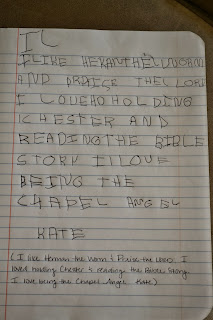 IL
I LIKE HERANTHELLWORM
AND PRAISE THE LLORE
I LOVEHO HOLDING
CHESTER AND
READING THE BIBLE
STORY I ILOVE
BEING THE
CHAPEL ANGEL
KATE
(I like Herman the Worm & Praise the Lord. I
loved holding Chester & reading the Bible Story.
I love being the Chapel Angel. Kate)